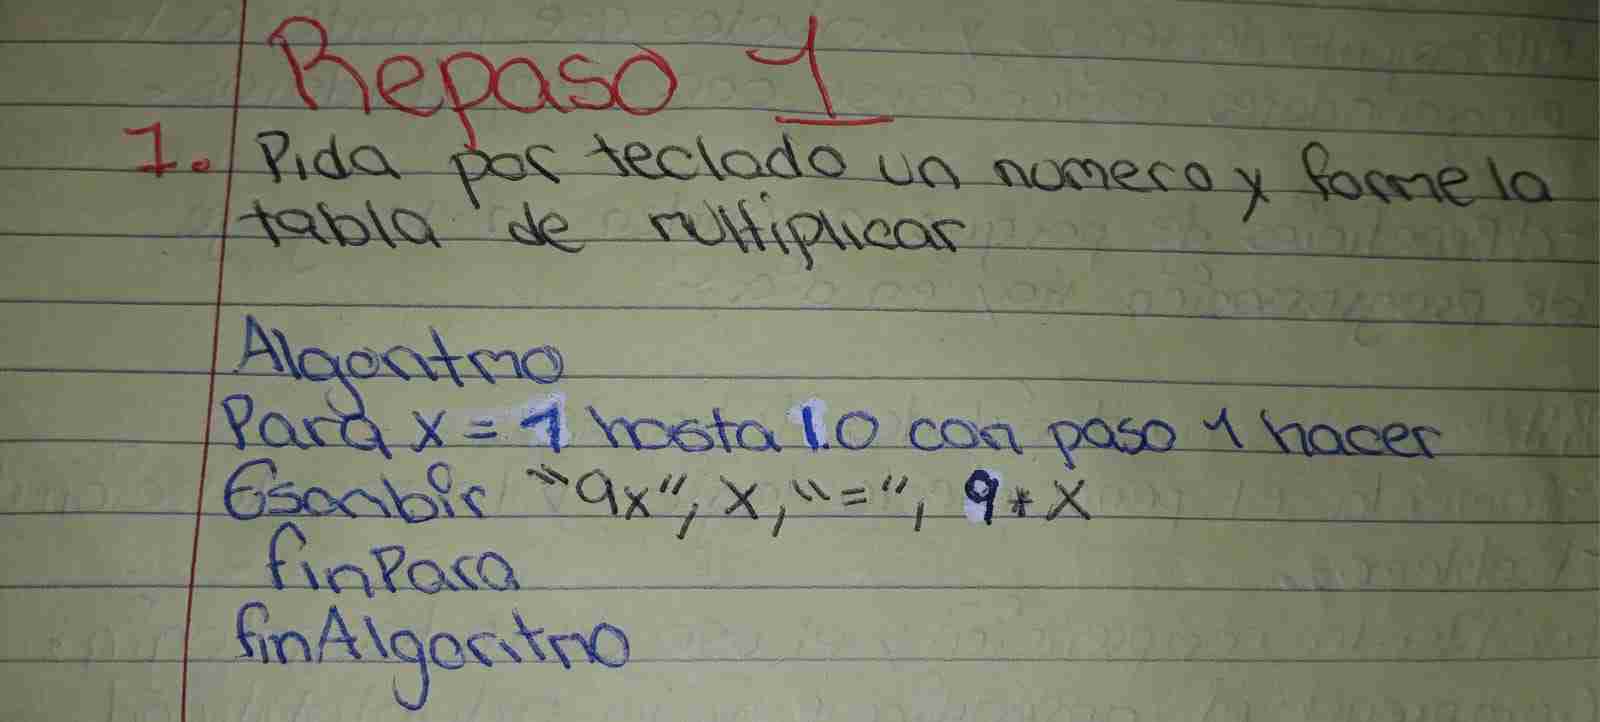 Repaso 1
1. Pida por teclado un numero y forme la
tabla de multiplicar
Algoritmo
Para x = 1 hasta 10 con paso 1 hacer
Escribir "9x", x, "=", 9 * x
finPara
finAlgoritmo